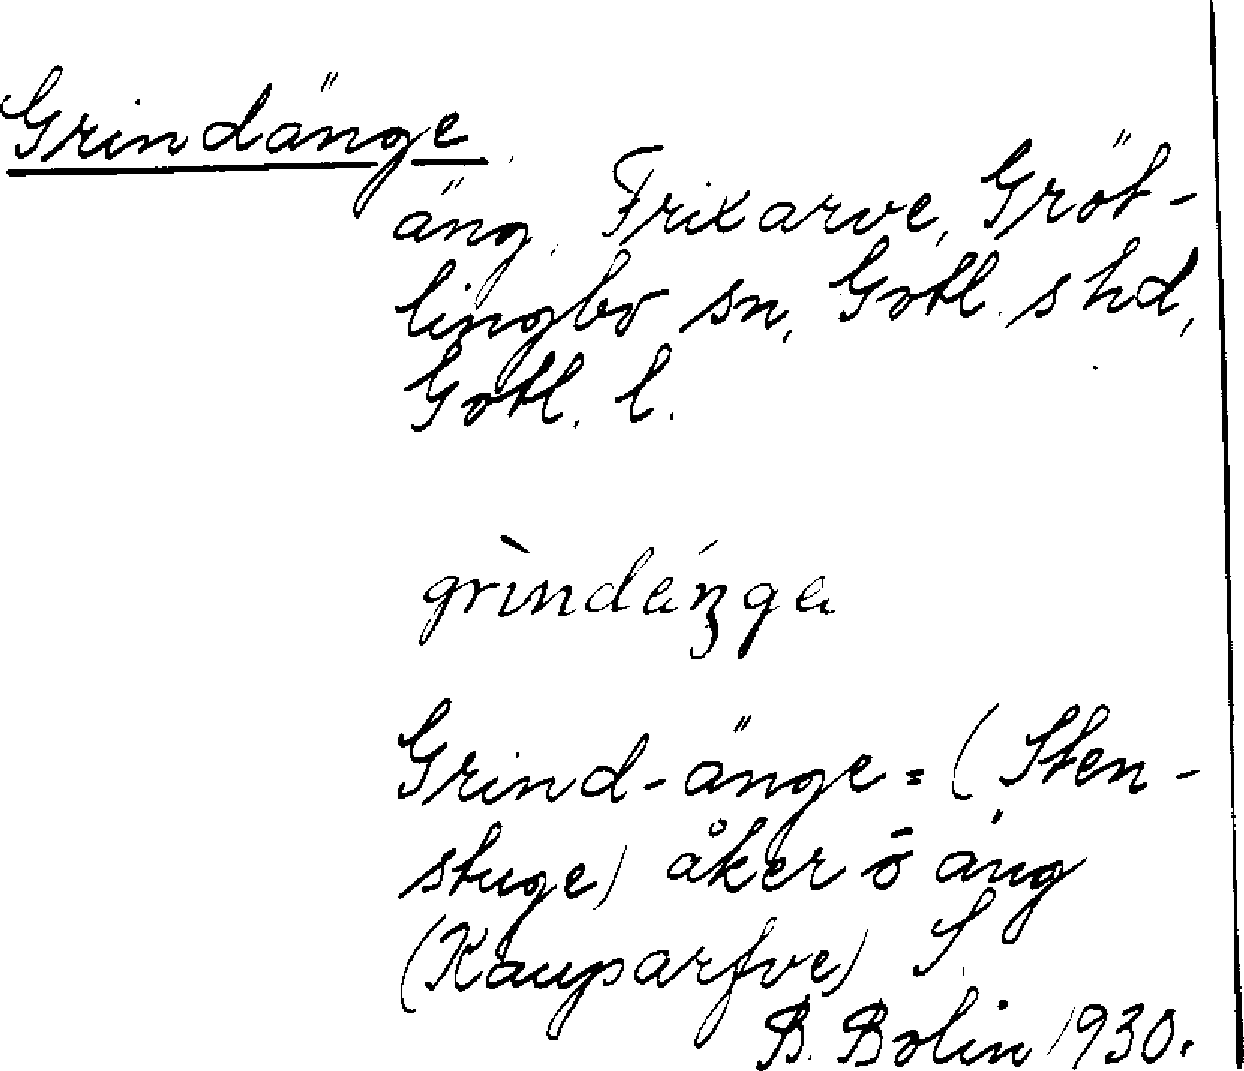 Grindänge
äng, Frixarve, Gröt-
lingbo sn, Gotl. s hd,
Gotl. l.
grìndäŋ́gä
Grind-änge = (Sten-
stuge) åker ō äng
(Kauparfve) S
B. Bolin 1930.